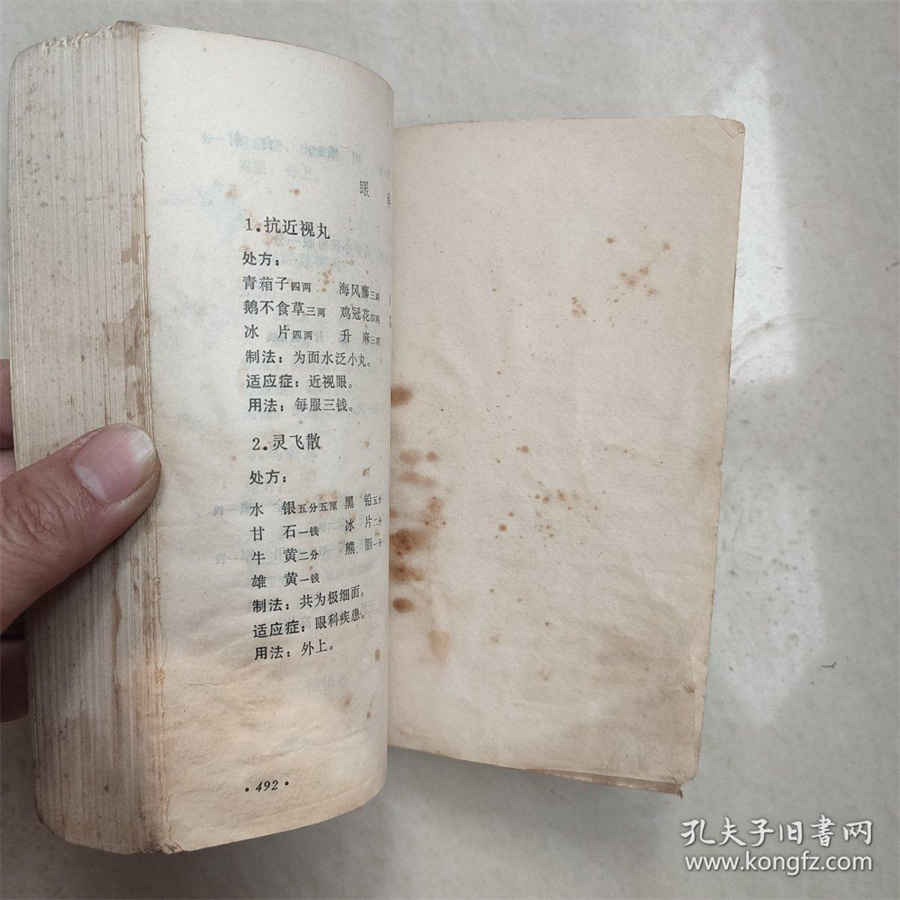 眼
1.抗近视丸
处方：
青葙子四两 海风藤三两
鹅不食草三两 鸡冠花四两
冰 片四两 升 麻三两
制法：为面水泛小丸。
适应症：近视眼。
用法：每服三钱。
2.灵飞散
处方：
水 银五分五厘 黑 铅五分
甘 石一钱 冰 片二分
牛 黄二分 熊 胆一分
雄 黄一钱
制法：共为极细面。
适应症：眼科疾患。
用法：外上。
·492·
孔夫子旧书网
www.kongfz.com